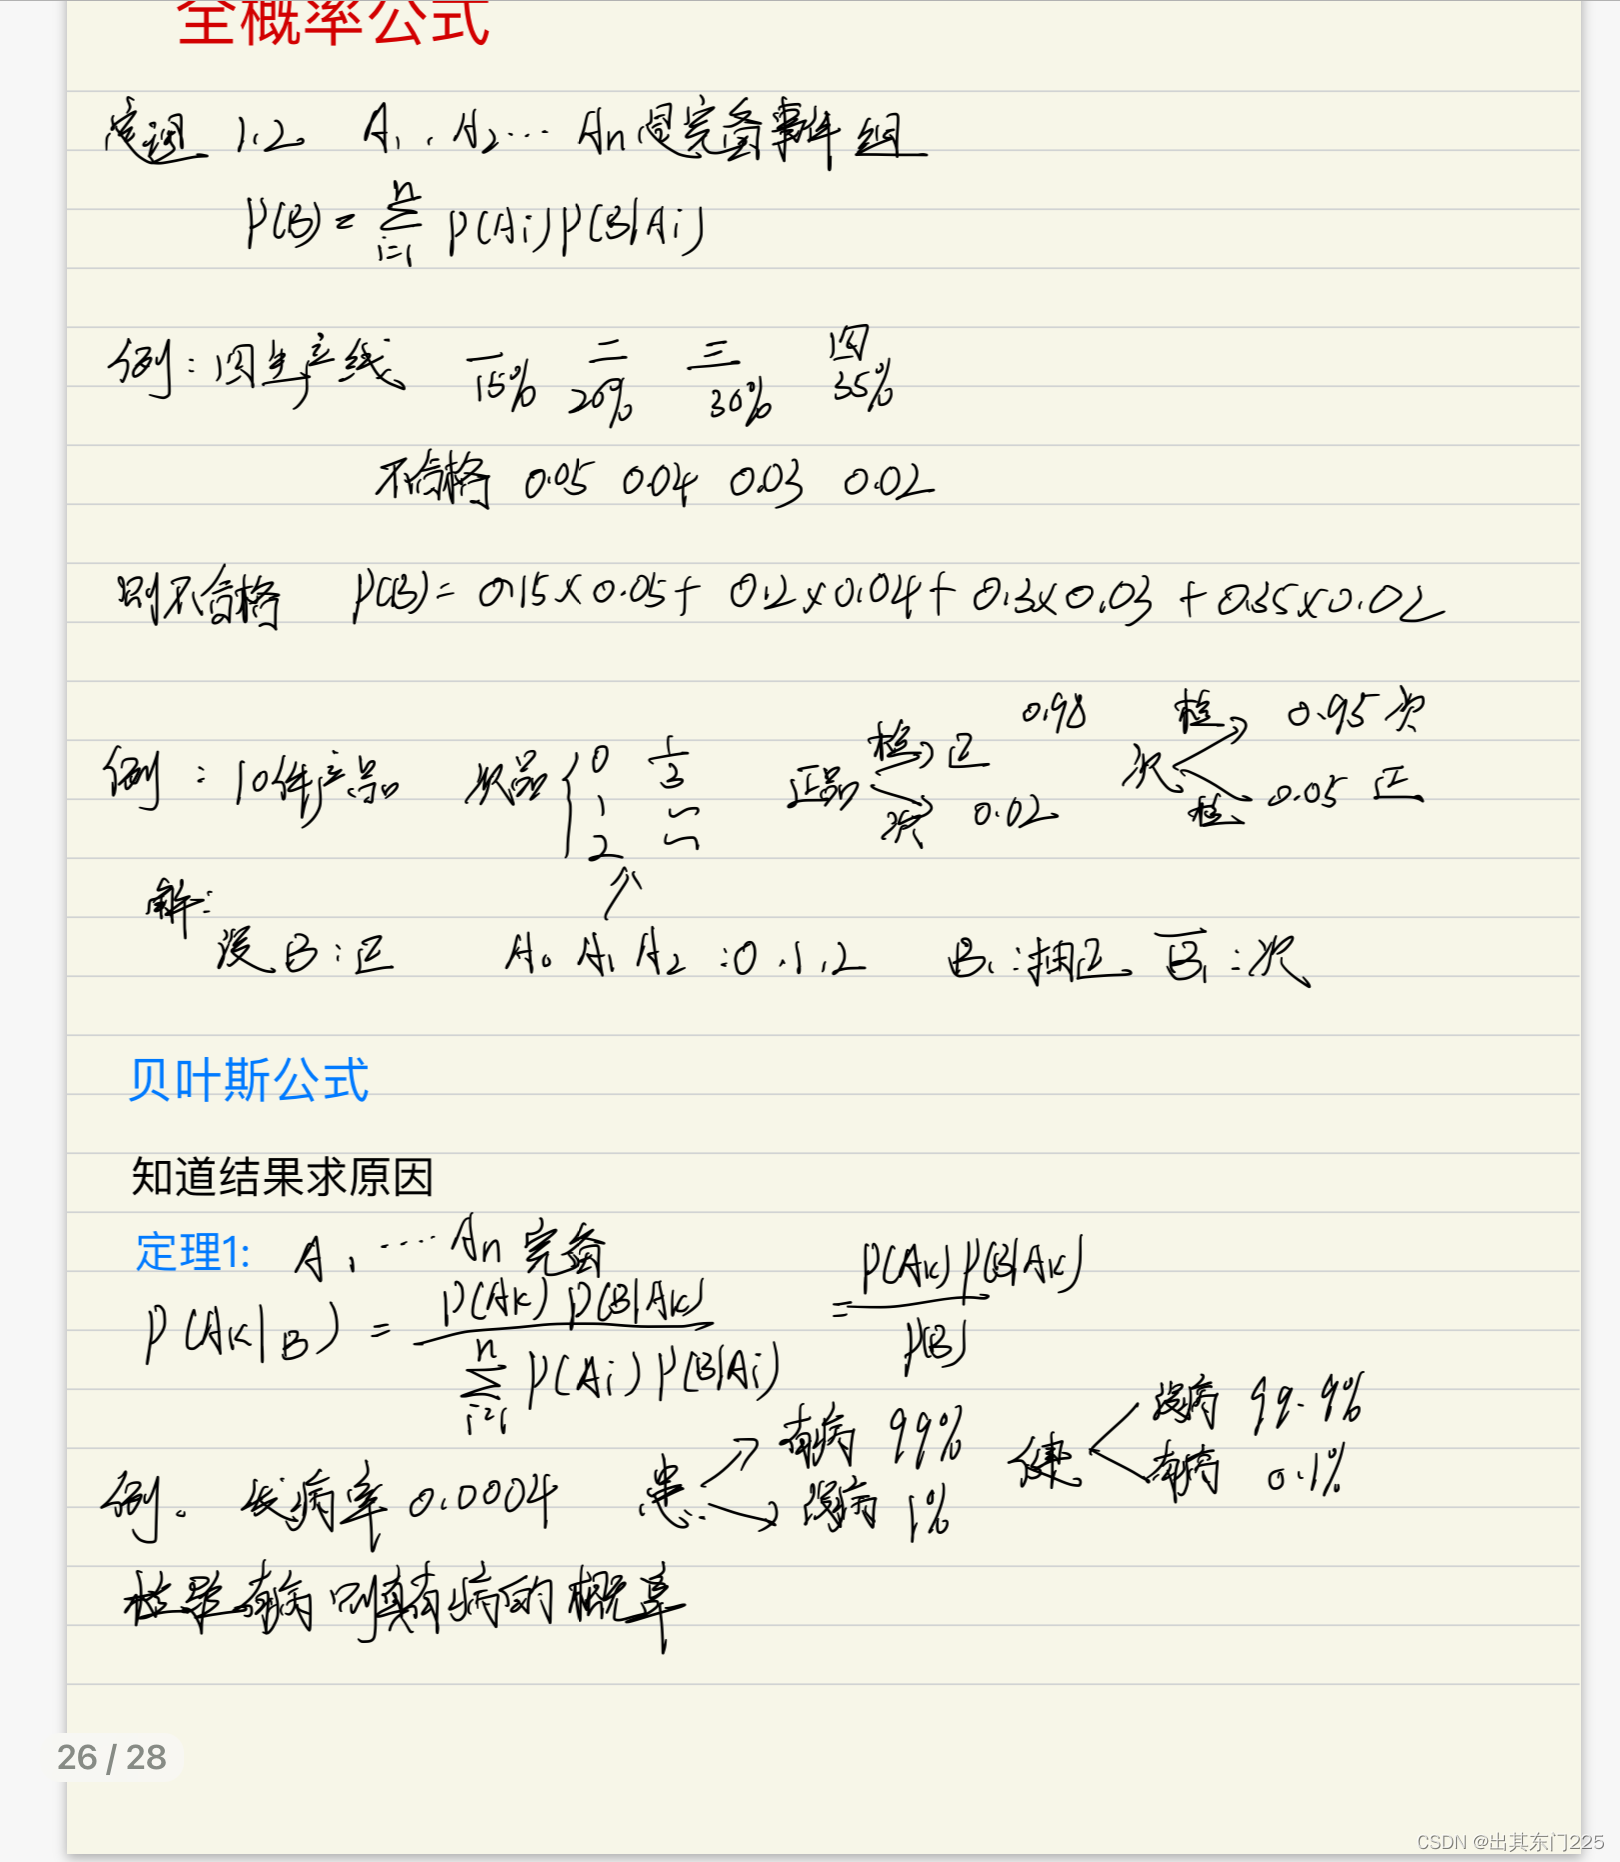 全概率公式
定理 1.2. A₁, A₂… An是完备事件组
P(B) = n∑i=1 P(Ai)P(B|Ai)
例: 四生产线 一 二 三 四
15% 20% 30% 35%
不合格 0.05 0.04 0.03 0.02
则不合格 P(B) = 0.15×0.05+ 0.2×0.04+ 0.3×0.03 + 0.35×0.02
例: 10件产品 次品 { 0 1/3 正品 检 正 0.98 次 检 0.95 次
1 ~ 次 0.02 检 0.05 正
2 ~
解:
设 B: 正 A₀ A₁ A₂ : 0.1.2 B₁: 抽正 B̅₁: 次
贝叶斯公式
知道结果求原因
定理1: A₁ …… An 完备
P(AK|B) = P(AK) P(B|AK) / n∑i=1 P(Ai) P(B|Ai) = P(AK) P(B|AK) / P(B)
例. 发病率 0.0004 患 有病 99% 没病 1% 健 没病 99.9% 有病 0.1%
检是有病 则真有病的概率
26 / 28
CSDN @出其东门225